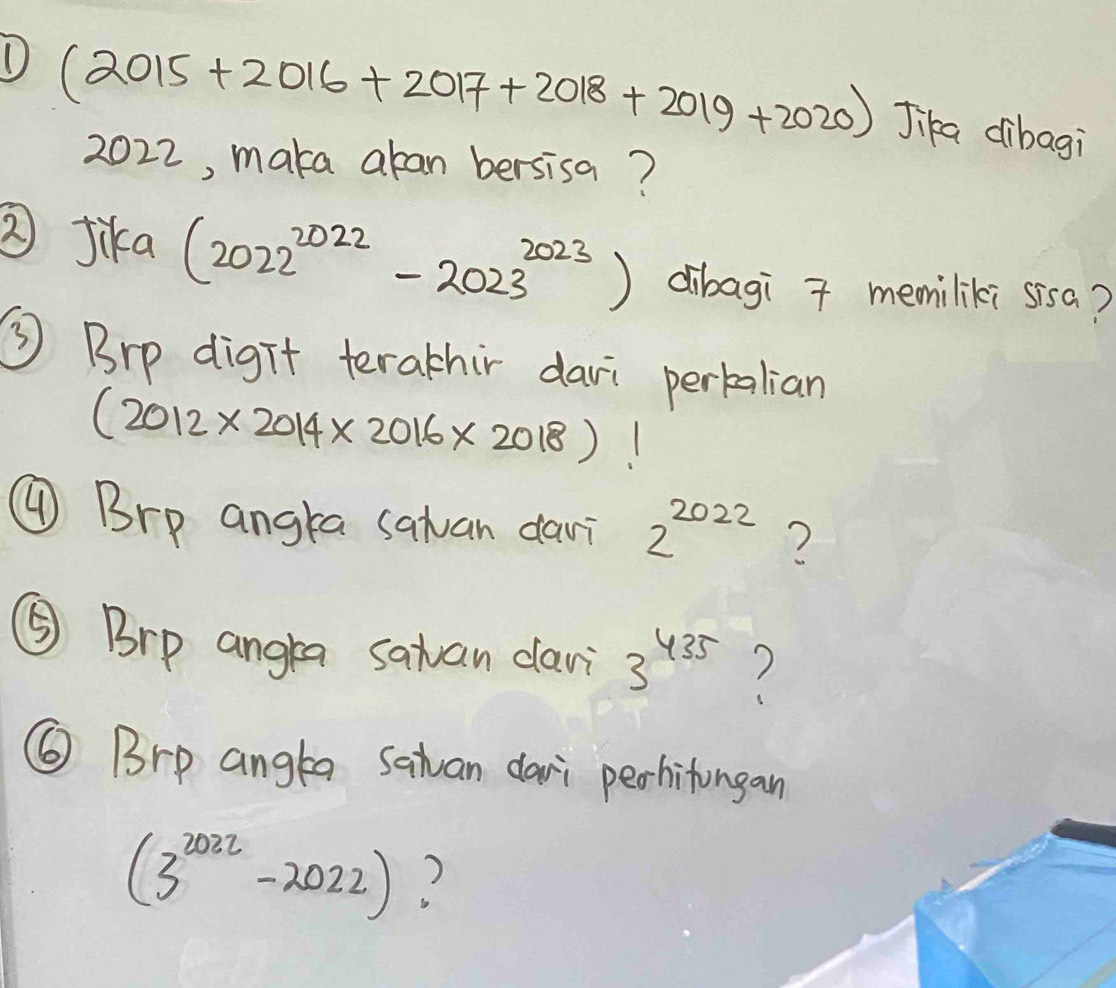 ① (2015 + 2016 + 2017 + 2018 + 2019 + 2020) Jika dibagi
2022, maka akan bersisa ?
② Jika (2022^2022 - 2023^2023) dibagi 7 memiliki sisa?
③ Brp digit terakhir dari perkalian
(2012 × 2014 × 2016 × 2018) !
④ Brp angka satuan dari 2^2022 ?
⑤ Brp angka satuan dari 3^435 ?
⑥ Brp angka satuan dari perhitungan
(3^2022 - 2022) ?